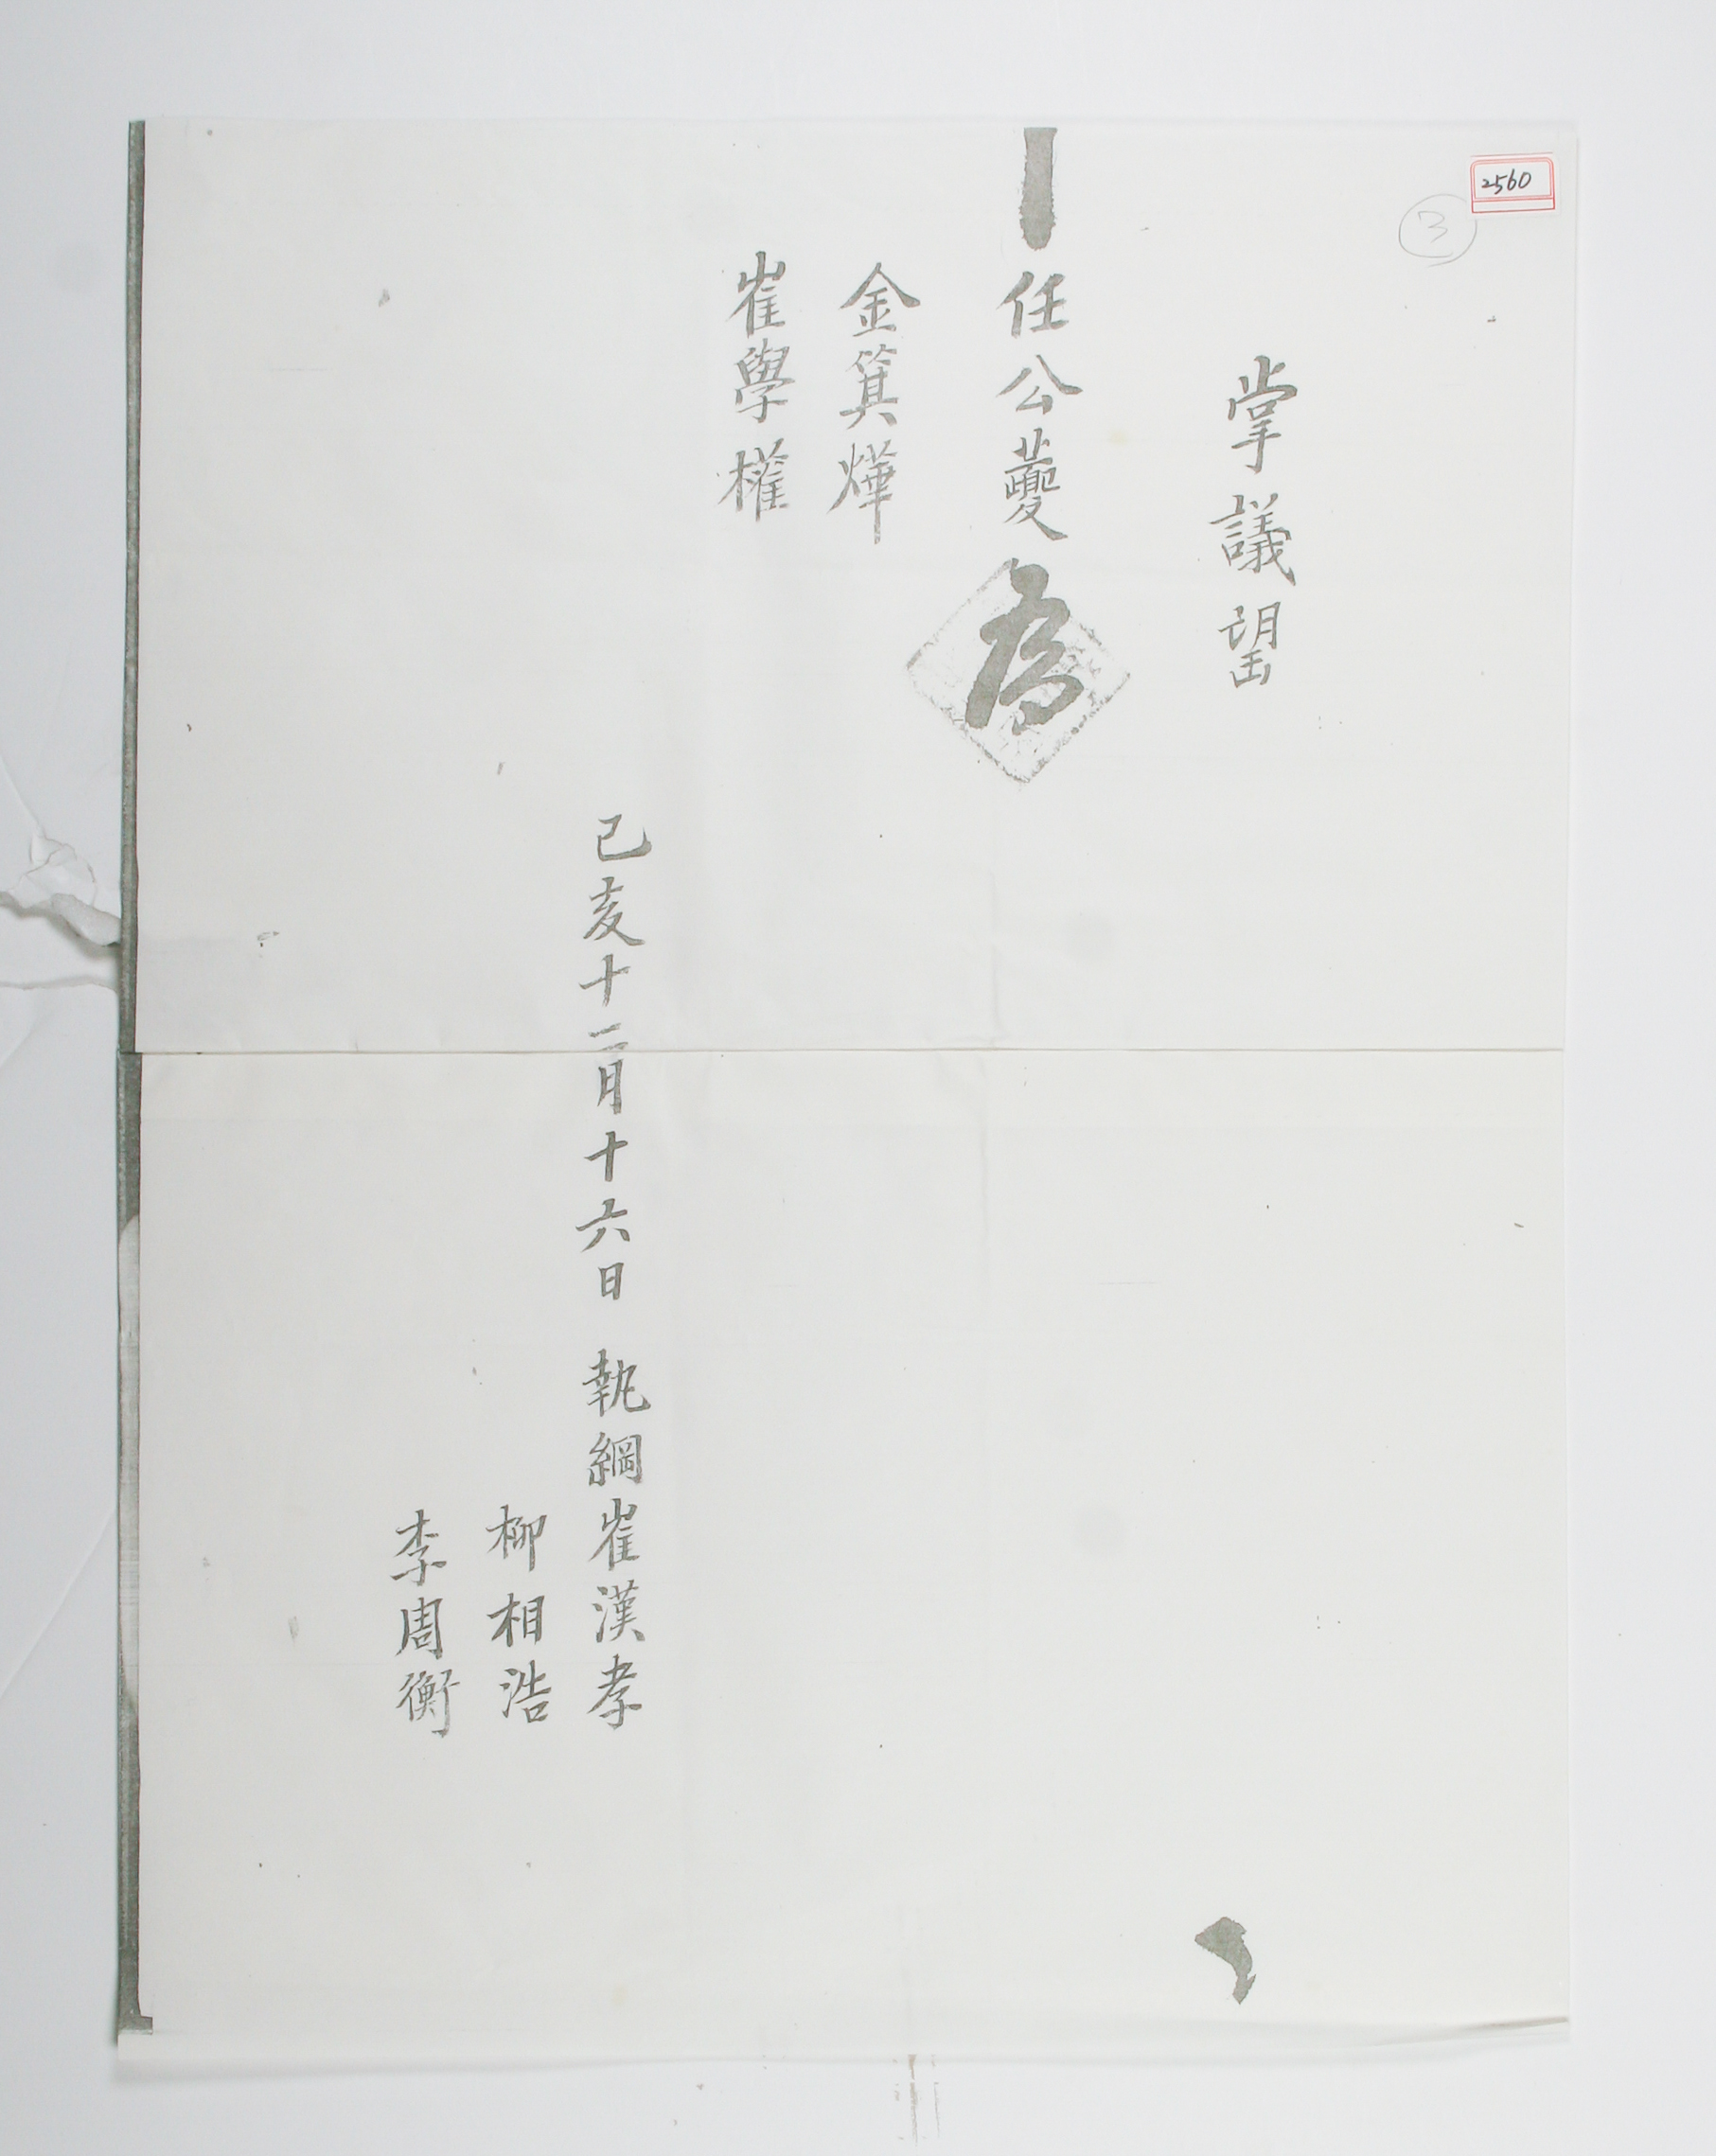 2560
3
掌議望
任公夔
為
金箕燁
崔學權
己亥十二月十六日 執綱崔漢孝
柳相浩
李周衡